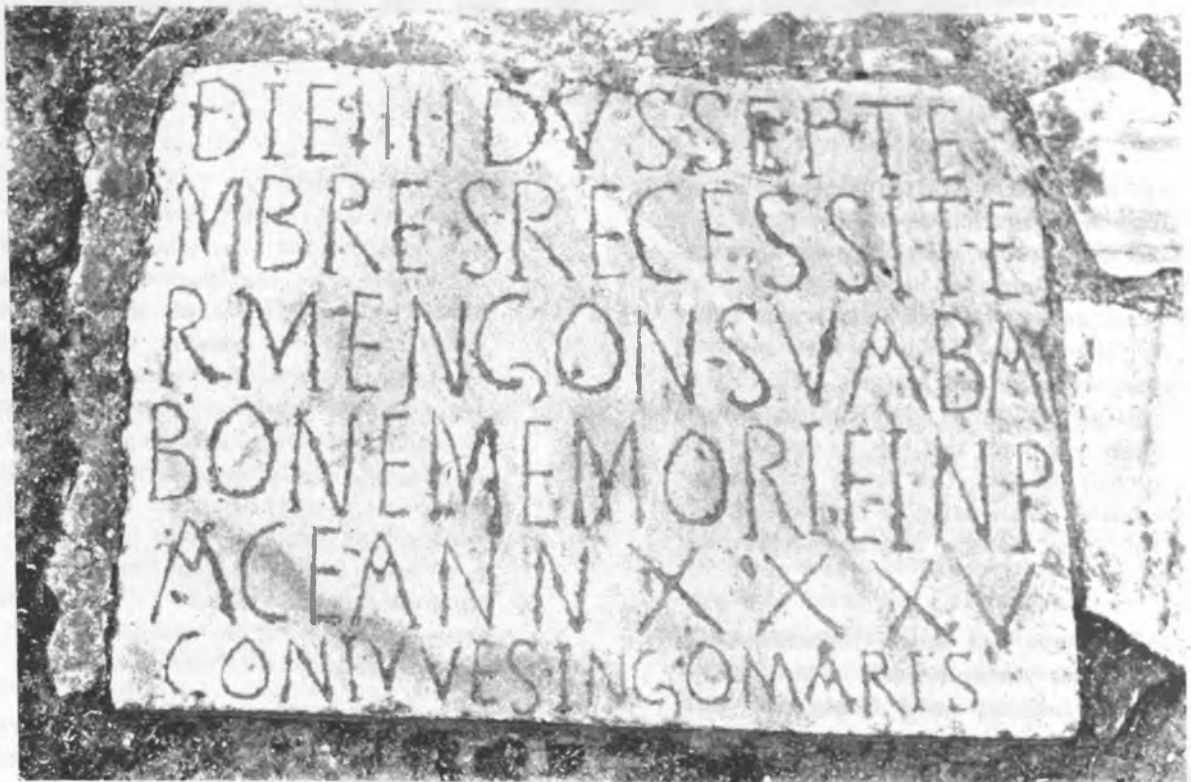 DIEIIIIDVSSEPTE
MBRESRECESSITE
RMENGONSVABA
BONEMEMORIEINP
ACEANNXXXV
CONIVVESINGOMARIS